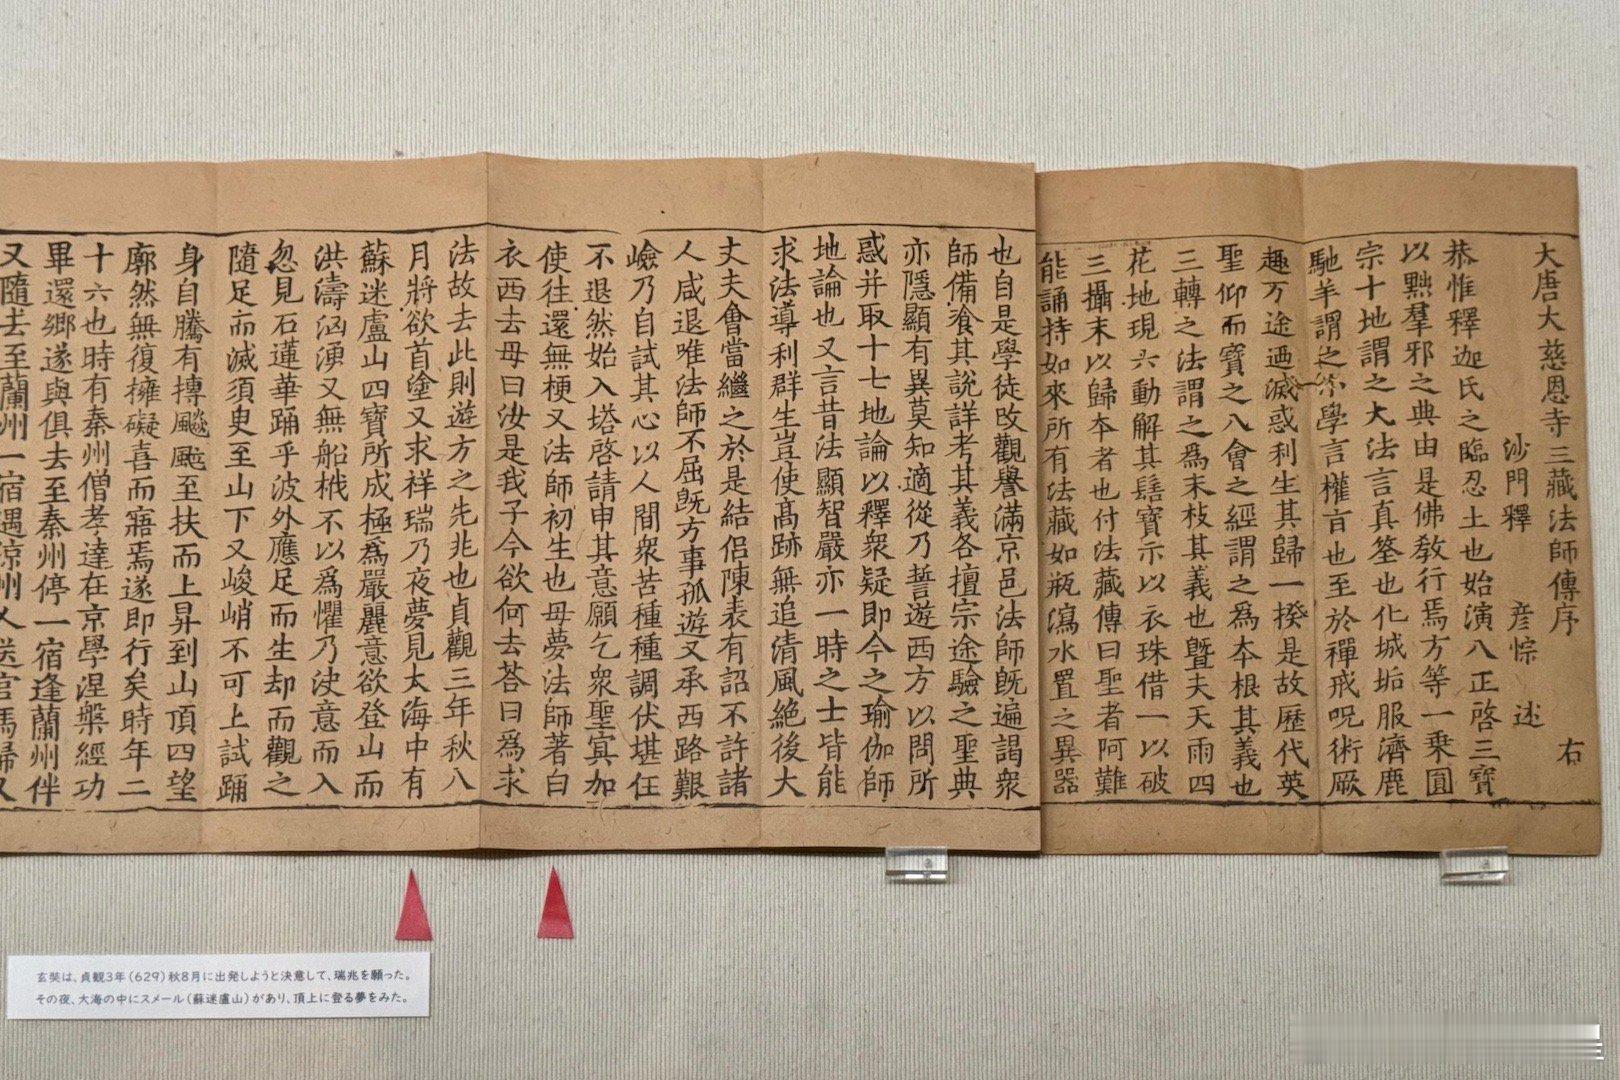 大唐大慈恩寺三藏法師傳序
右
沙門釋 彦悰 述
恭惟釋迦氏之臨忍土也始演八正啓三寶
以黜羣邪之典由是佛教行焉方等一乗圓
宗十地謂之大法言真筌也化城垢服濟鹿
馳羊謂之小學言權旨也至於禪戒呪術厥
趣万途而滅惑利生其歸一揆是故歷代英
聖仰而寶之八會之經謂之為本根其義也
三轉之法謂之為末枝其義也暨夫天雨四
花地現六動解其髻寶示以衣珠借一以破
三攝末以歸本者也付法藏傳曰聖者阿難
能誦持如來所有法藏如瓶瀉水置之異器
也自是學徒改觀譽滿京邑法師既遍謁衆
師備飡其說詳考其義各擅宗途驗之聖典
亦隱顯有異莫知適從乃誓遊西方以問所
惑并取十七地論以釋衆疑即今之瑜伽師
地論也又言昔法顯智嚴亦一時之士皆能
求法導利群生豈使高跡無追清風絕後大
丈夫會當繼之於是結侶陳表有詔不許諸
人咸退唯法師不屈既方事孤遊又承西路艱
嶮乃自試其心以人間衆苦種種調伏堪任
不退然始入塔啓請申其意願乞衆聖冥加
使往還無梗又法師初生也母夢法師著白
衣西去母曰汝是我子今欲何去荅曰為求
法故去此則遊方之先兆也貞觀三年秋八
月將欲首塗又求祥瑞乃夜夢見大海中有
蘇迷盧山四寶所成極為嚴麗意欲登山而
洪濤洶湧又無船栰不以為懼乃決意而入
忽見石蓮華踊乎波外應足而生却而觀之
隨足而滅須臾至山下又峻峭不可上試踊
身自騰有摶飈颯至扶而上昇到山頂四望
廓然無復擁礙喜而寤焉遂即行矣時年二
十六也時有秦州僧孝達在京學涅槃經功
畢還鄉遂與俱去至秦州停一宿逢蘭州伴
又隨去至蘭州一宿遇涼州人送官馬歸又
玄奘は、貞観3年（629）秋8月に出発しようと決意して、瑞兆を願った。
その夜、大海の中にスメール（蘇迷盧山）があり、頂上に登る夢をみた。